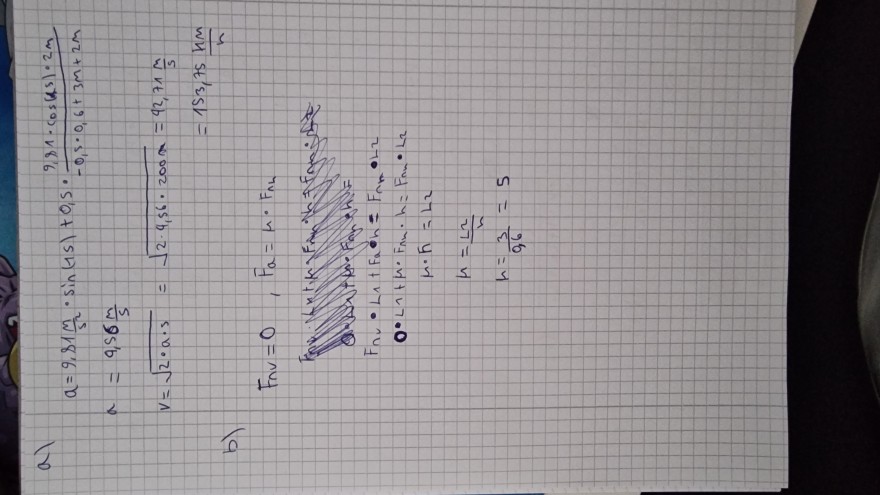 a)
a = 9,81 m/s² • sin(15) + 0,5 • 9,81 • cos(15) • 2m / -0,5 • 0,6 + 3m + 2m
a = 4,56 m/s
v = √2 • a • s = √2 • 4,56 • 200m = 42,71 m/s
= 153,75 km/h
b)
Fnv = 0 , Fa = μ • Fnh
Fnv • L1 + Fa • h = Fnh • L2
0 • L1 + μ • Fnh • h = Fnh • L2
μ • h = L2
μ = L2/h
μ = 3/0,6 = 5